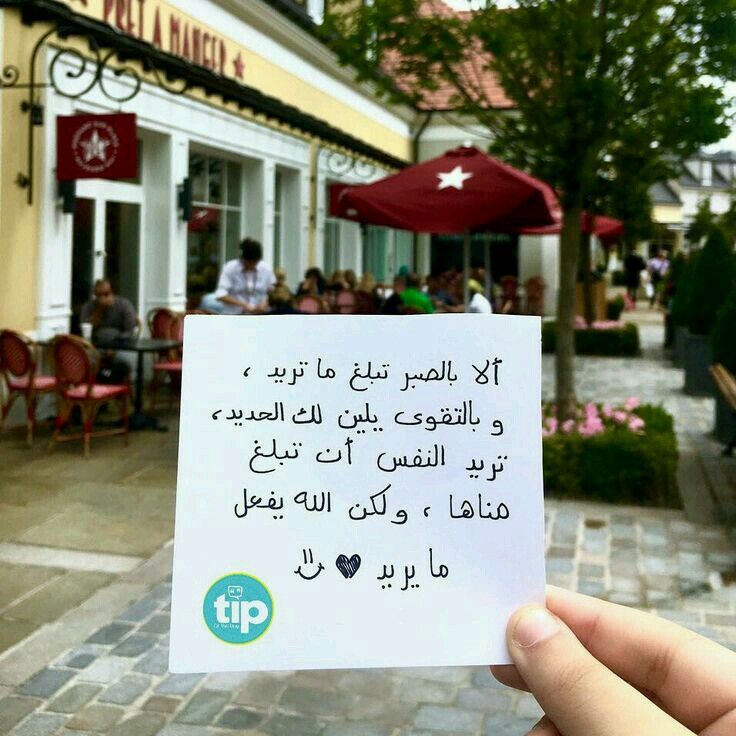 PRET A MANGER
ألا بالصبر تبلغ ما تريد ،
و بالتقوى يلين لك الحديد،
تريد النفس أن تبلغ
مناها ، ولكن الله يفعل
ما يريد
tip